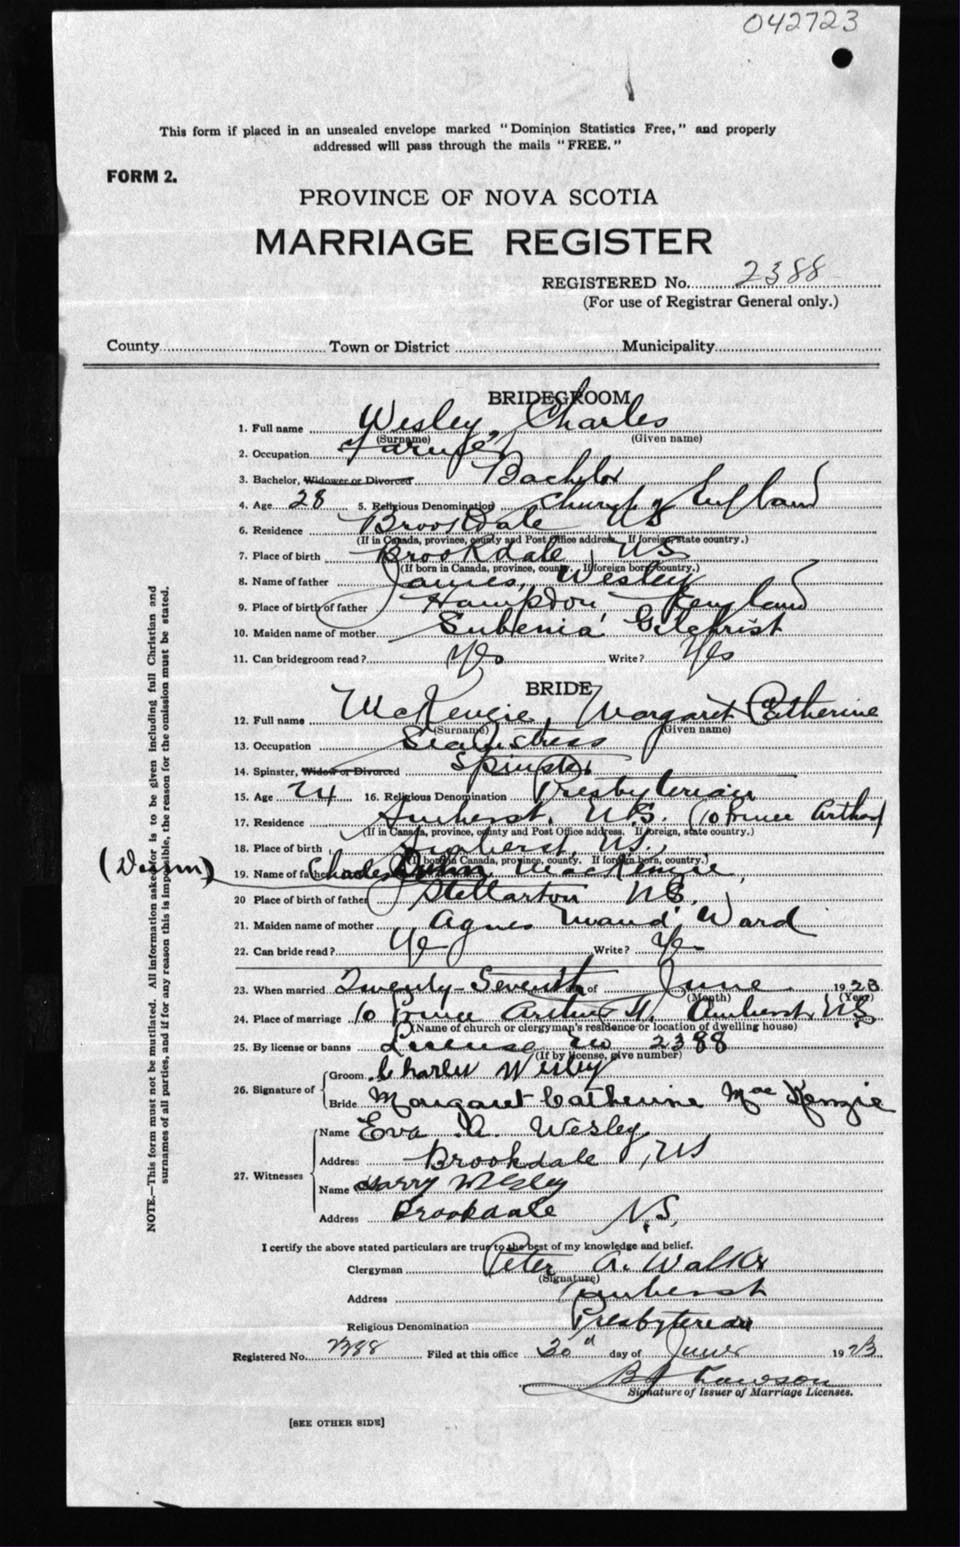 042723
This form if placed in an unsealed envelope marked "Dominion Statistics Free," and properly
addressed will pass through the mails "FREE."
FORM 2.
PROVINCE OF NOVA SCOTIA
MARRIAGE REGISTER
REGISTERED No. 2388
(For use of Registrar General only.)
County Town or District Municipality
BRIDEGROOM
1. Full name Wesley, Charles
(Surname) (Given name)
2. Occupation Farmer
3. Bachelor, Widower or Divorced Bachelor
4. Age 28 5. Religious Denomination Church of England
6. Residence Brookdale NS
(If in Canada, province, county and Post Office address. If foreign, state country.)
7. Place of birth Brookdale, NS
(If born in Canada, province, county. If foreign born, country.)
8. Name of father James, Wesley
9. Place of birth of father Hampdon England
10. Maiden name of mother Gilchrist
11. Can bridegroom read? Yes Write? Yes
BRIDE
12. Full name McKenzie, Margaret Catherine
(Surname) (Given name)
13. Occupation Seamstress
14. Spinster, Widow or Divorced Spinster
15. Age 24 16. Religious Denomination Presbyterian
17. Residence Amherst, N.S. (10 Prince Arthur)
(If in Canada, province, county and Post Office address. If foreign, state country.)
18. Place of birth Amherst, NS.
(If born in Canada, province, county. If foreign born, country.)
(Dunn) 19. Name of father Charles Dunn MacKenzie,
20 Place of birth of father Stellarton NS.
21. Maiden name of mother Agnes Maud Ward
22. Can bride read? Yes Write? Yes
23. When married Twenty-Seventh of June 1923
(Month) (Year)
24. Place of marriage 10 Prince Arthur St. Amherst, NS
(Name of church or clergyman's residence or location of dwelling house)
25. By license or banns License no 2388
(If by license, give number)
26. Signature of
Groom Charles Wesley
Bride Margaret Catherine MacKenzie
27. Witnesses
Name Eva A. Wesley
Address Brookdale, NS
Name Harry Wesley
Address Brookdale N.S,
I certify the above stated particulars are true to the best of my knowledge and belief.
Clergyman Peter A. Walker
(Signature)
Address Amherst
Religious Denomination Presbyterian
Registered No. 2388 Filed at this office 30 day of June 1923
Lawson
Signature of Issuer of Marriage Licenses.
[SEE OTHER SIDE]
NOTE.—This form must not be mutilated. All information asked for is to be given including full Christian and
surnames of all parties, and if for any reason this is impossible, the reason for the omission must be stated.